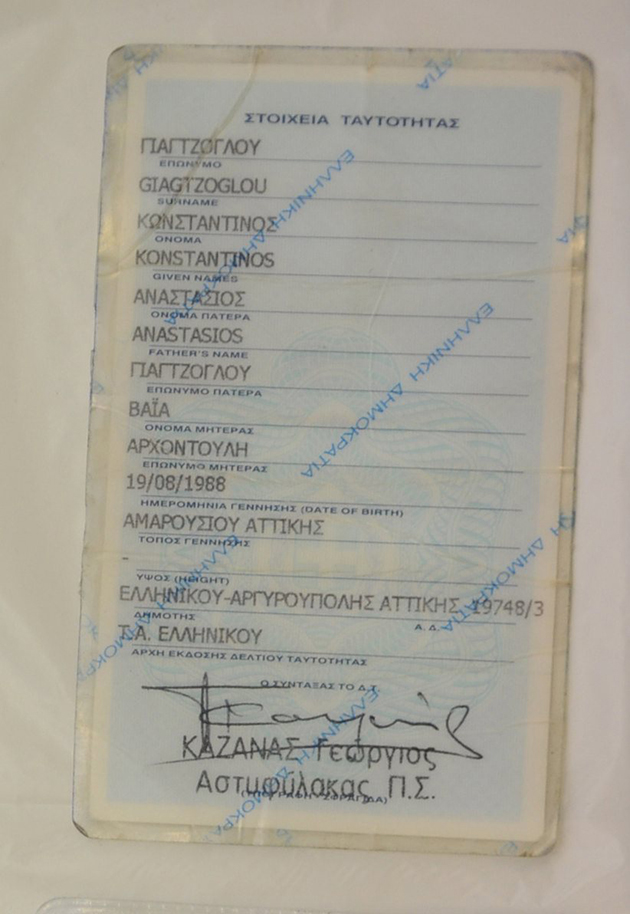 ΣΤΟΙΧΕΙΑ ΤΑΥΤΟΤΗΤΑΣ
ΓΙΑΓΤΖΟΓΛΟΥ
ΕΠΩΝΥΜΟ
GIAGTZOGLOU
SURNAME
ΚΩΝΣΤΑΝΤΙΝΟΣ
ΟΝΟΜΑ
KONSTANTINOS
GIVEN NAMES
ΑΝΑΣΤΑΣΙΟΣ
ΟΝΟΜΑ ΠΑΤΕΡΑ
ANASTASIOS
FATHER'S NAME
ΓΙΑΓΤΖΟΓΛΟΥ
ΕΠΩΝΥΜΟ ΠΑΤΕΡΑ
ΒΑΪΑ
ΟΝΟΜΑ ΜΗΤΕΡΑΣ
ΑΡΧΟΝΤΟΥΛΗ
ΕΠΩΝΥΜΟ ΜΗΤΕΡΑΣ
19/08/1988
ΗΜΕΡΟΜΗΝΙΑ ΓΕΝΝΗΣΗΣ (DATE OF BIRTH)
ΑΜΑΡΟΥΣΙΟΥ ΑΤΤΙΚΗΣ
ΤΟΠΟΣ ΓΕΝΝΗΣΗΣ
-
ΥΨΟΣ (HEIGHT)
ΕΛΛΗΝΙΚΟΥ-ΑΡΓΥΡΟΥΠΟΛΗΣ ΑΤΤΙΚΗΣ 19748/3
ΔΗΜΟΤΗΣ Α.Δ.
Τ.Α. ΕΛΛΗΝΙΚΟΥ
ΑΡΧΗ ΕΚΔΟΣΗΣ ΔΕΛΤΙΟΥ ΤΑΥΤΟΤΗΤΑΣ
Ο ΣΥΝΤΑΞΑΣ ΤΟ Δ.Τ.
ΚΑΖΑΝΑΣ Γεώργιος
Αστυφύλακας Π.Σ.
(ΥΠΟΓΡΑΦΗ ΣΦΡΑΓΙΔΑ)
ΕΛΛΗΝΙΚΗ ΔΗΜΟΚΡΑΤΙΑ